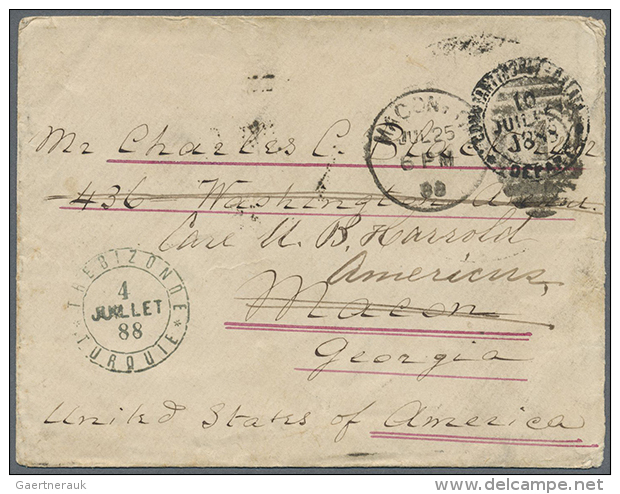 MACON, GA.
JUL 25
6 PM
88
10
JUIL
1888
DEPART
Mr Charles C.
436 Washington
Care U. B. Harrold
Americus,
Macon
Georgia
United States of America
TREBIZONDE
4
JUILLET
88
* TURQUIE *
Gaertnerauk
delcampe.net